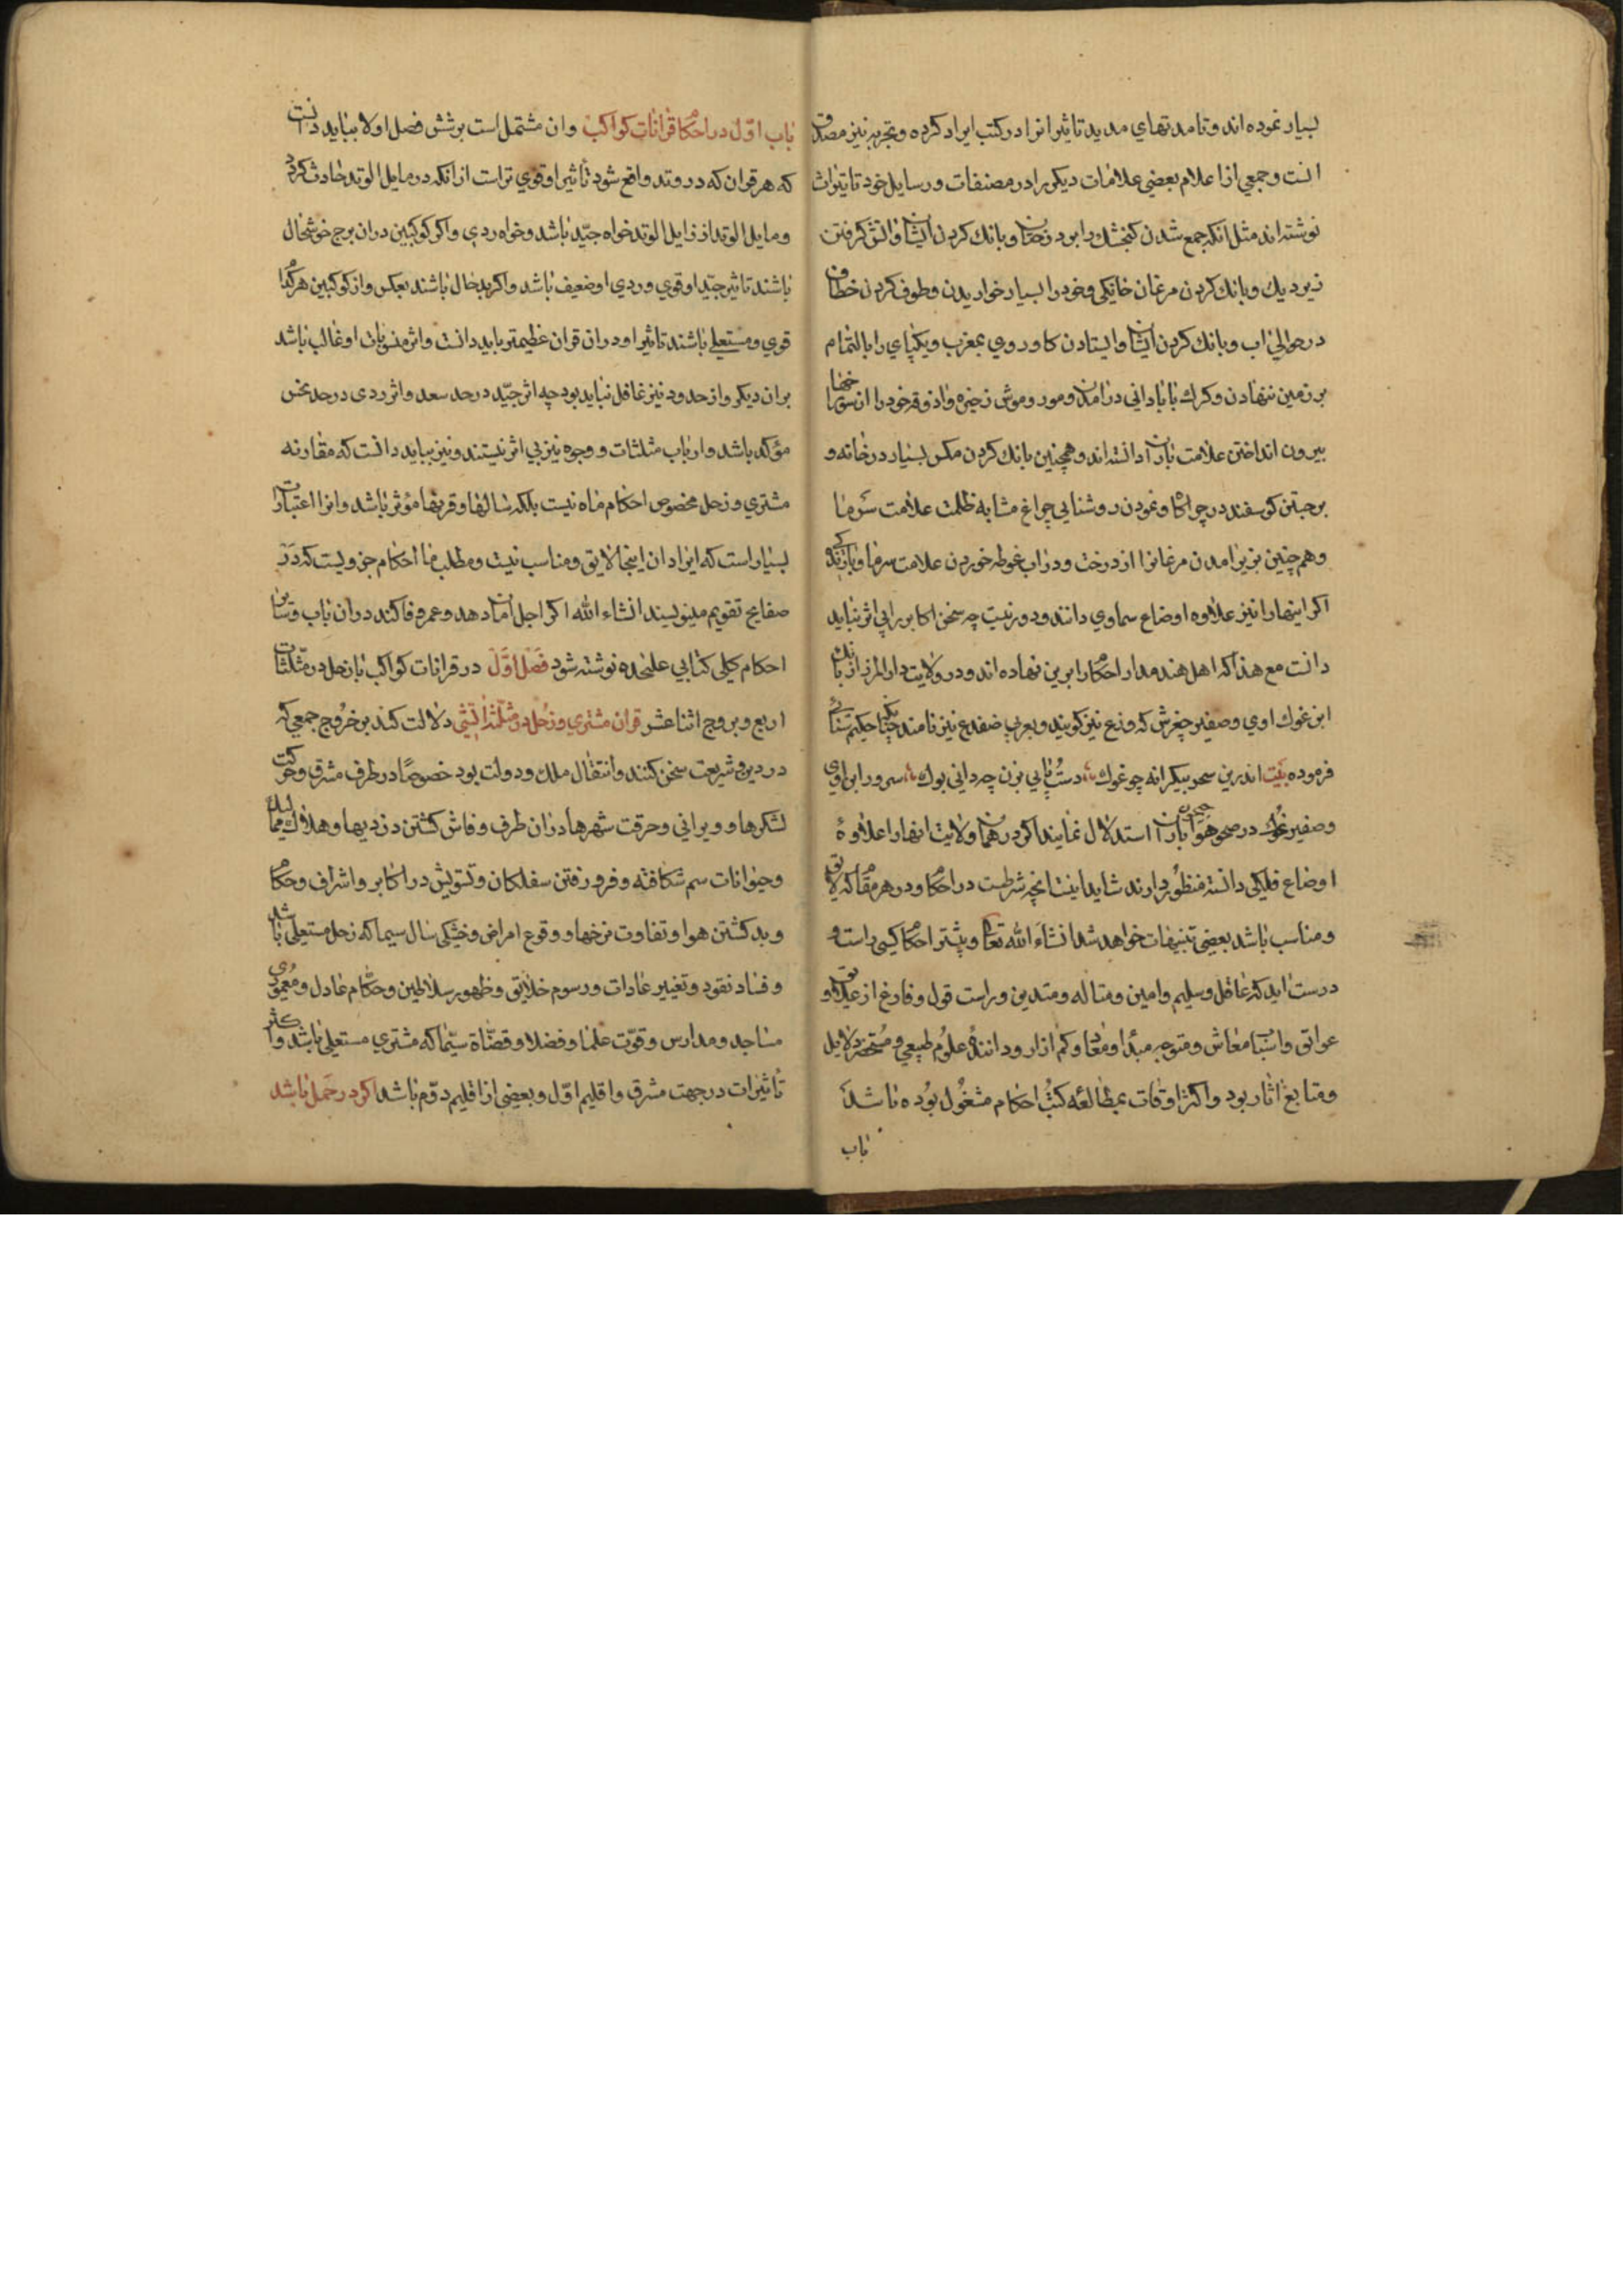 بسیار نموده اند و تا مدتهای مدید تاثیر انرا در کتب ایراد کرده و تجربه نیز مصدق
انست و جمعی از اعلام بعضی علامات دیکر را در مصنفات و رسایل خود تاثیرات
نوشته اند مثل انکه جمع شدن کنجشک را بر درختان و بانک کردن ایشان و اتش کرفتن
زیر دیک و بانک کردن مرغان خانیکی و خود را بسیار خواریدن و طوف کردن خطاف
در حوالی اب و بانک کردن ایشان و ایستادن کاو روی بمغرب و یکپای را بالتمام
بر زمین ننهادن و کرک با بادانی درامدن و مور و موش ذخیره و اذوقه خود را از سوراخها
بیرون انداختن علامت باران دانسته اند و همچنین بانک کردن مکس بسیار در خانه و
برجستن کوسفند در چراکاه و نمودن روشنایی چراغ مشابه ظلمت علامت سرما
و هم چنین بزیر امدن مرغانرا از درخت و در اب غوطه خوردن علامت سرما و بارندکی
اکر اینها را نیز علاوه اوضاع سماوی دانند دور نیست چه سخن اکابر را بی اثر نباید
دانست مع هذا که اهل هند مدار احکام را برین نهاده اند و در ولایت دار المرز از بانک
ابن غوک اوی و صفیر چغرش که وزع نیز کویند و بعربی ضفدع نیز نامند چنانکه حکیم سنائی
فرموده بیت اندرین سحر بیکرانه چو غوک دست پایی بزن چه دانی بوک سرور ابن اوی
و صفیر غوک در صحو هوا بجهت باران استدلال نمایند اکر در همان ولایت انها را علاوهٔ
اوضاع فلیکی دانسته منظور دارند شاید اینست انچه شرطست در احکام و در هر مقام که لایق
و مناسب باشد بعضی تنبیهات خواهد شد انشاء الله تعالی و بیشتر احکام کسی راست و
درست اید که عاقل و سلیم و امین و متاله و متدین و راست قول و فارغ از علایق و
عوایق و اسباب معاش و متوجه مبدا و معاد و کم ازار و دانندهٔ علوم طبیعی و مستحضر دلایل
و متابع اثار بود و اکثر اوقات بمطالعه کتب احکام مشغول بوده باشد
باب
باب اول در احکام قرانات کواکب و ان مشتمل است بر شش فصل اولا بباید دانست
که هر قران که در وتد واقع شود تاثیر او قوی تر است از انکه در مایل الوتد حادث کردد
و مایل الوتد از زایل الوتد خواه جید باشد و خواه ردی و اکر کوکبین در ان برج خوشحال
باشند تاثیر جید او قوی و ردی او ضعیف باشد و اکر بدحال باشند بعکس و از کوکبین هر کدام
قوی و مستعلی باشند تاثیر او در ان قران عظیمتر باید دانست و اثر منسوبات او غالب باشد
بر ان دیکر و از حدود نیز غافل نباید بود چه اثر جید در حد سعد و اثر ردی در حد نحس
مؤکد باشد و ارباب مثلثات و وجوه نیز بی اثر نیستند و نیز بباید دانست که مقارنه
مشتری و زحل مخصوص احکام ماه نیست بلکه سالها و قرنها مؤثر باشد و انرا اعتبارات
بسیار است که ایراد ان اینجا لایق و مناسب نیست و مطلب ما احکام جزویست که در
صفایح تقویم مینویسند انشاء الله اکر اجل امان دهد و عمر وفا کند در ان باب و سایر
احکام کلی کتابی علیحده نوشته شود فصل اول در قرانات کواکب با زحل در مثلثات
اربع و بروج اثنا عشر قران مشتری و زحل در مثلثه اتشی دلالت کند بر خروج جمعی که
در دین و شریعت سخن کنند و انتقال ملک و دولت بود خصوصا در طرف مشرق و حرکت
لشکرها و ویرانی و حرقت شهرها در ان طرف و فاش کشتن دزدیها و هلاک
و حیوانات سم شکافته و فرو رفتن سفلکان و تشویش در اکابر و اشراف و حکام
و بد کشتن هوا و تفاوت نرخها و وقوع امراض و خشکی سال سیما که زحل مستعلی باشد
و فساد نقود و تغییر عادات و رسوم خلایق و ظهور سلاطین و حکام عادل و معموری
مساجد و مدارس و قوت علما و فضلا و قضاة سیما که مشتری مستعلی باشد و اکثر
تاثیرات در جهت مشرق و اقلیم اول و بعضی از اقلیم دوم باشد اکر در حمل باشد